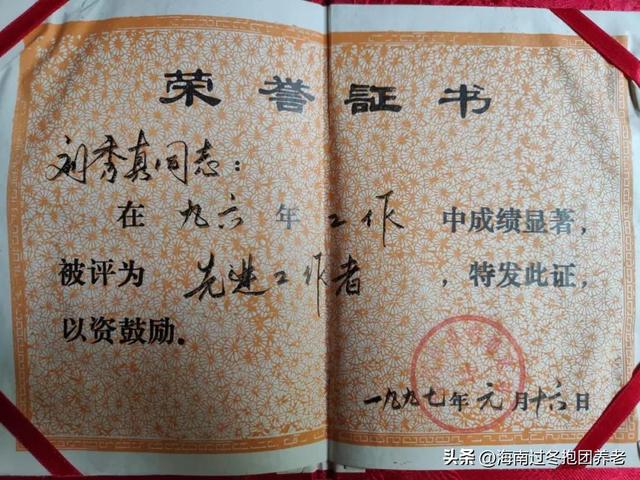 荣誉证书
刘秀真同志：
在九六年工作中成绩显著，
被评为先进工作者，特发此证，
以资鼓励。
一九九七年元月十六日
头条 @海南过冬抱团养老